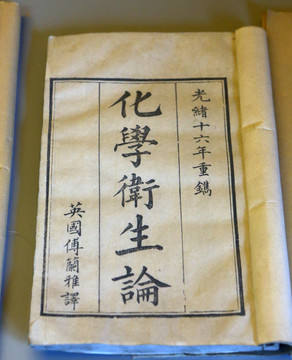 光緒十六年重鐫
化學衛生論
英國傅蘭雅譯